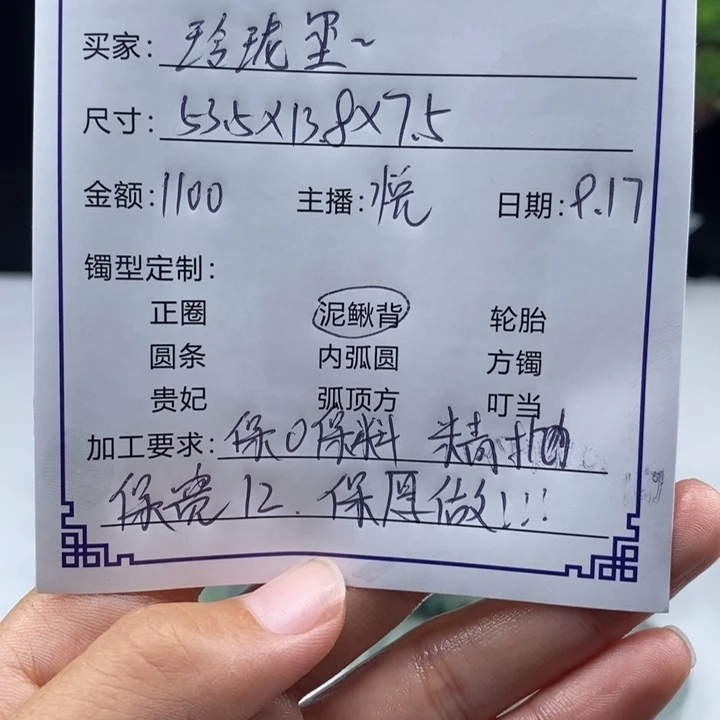 买家: 玲珑玺~
尺寸: 53.5×13.8×7.5
金额: 1100 主播: 悦 日期: 9.17
镯型定制:
正圈 泥鳅背 轮胎
圆条 内弧圆 方镯
贵妃 弧顶方 叮当
加工要求: 保0保料 精抛
保宽12. 保厚做!!!